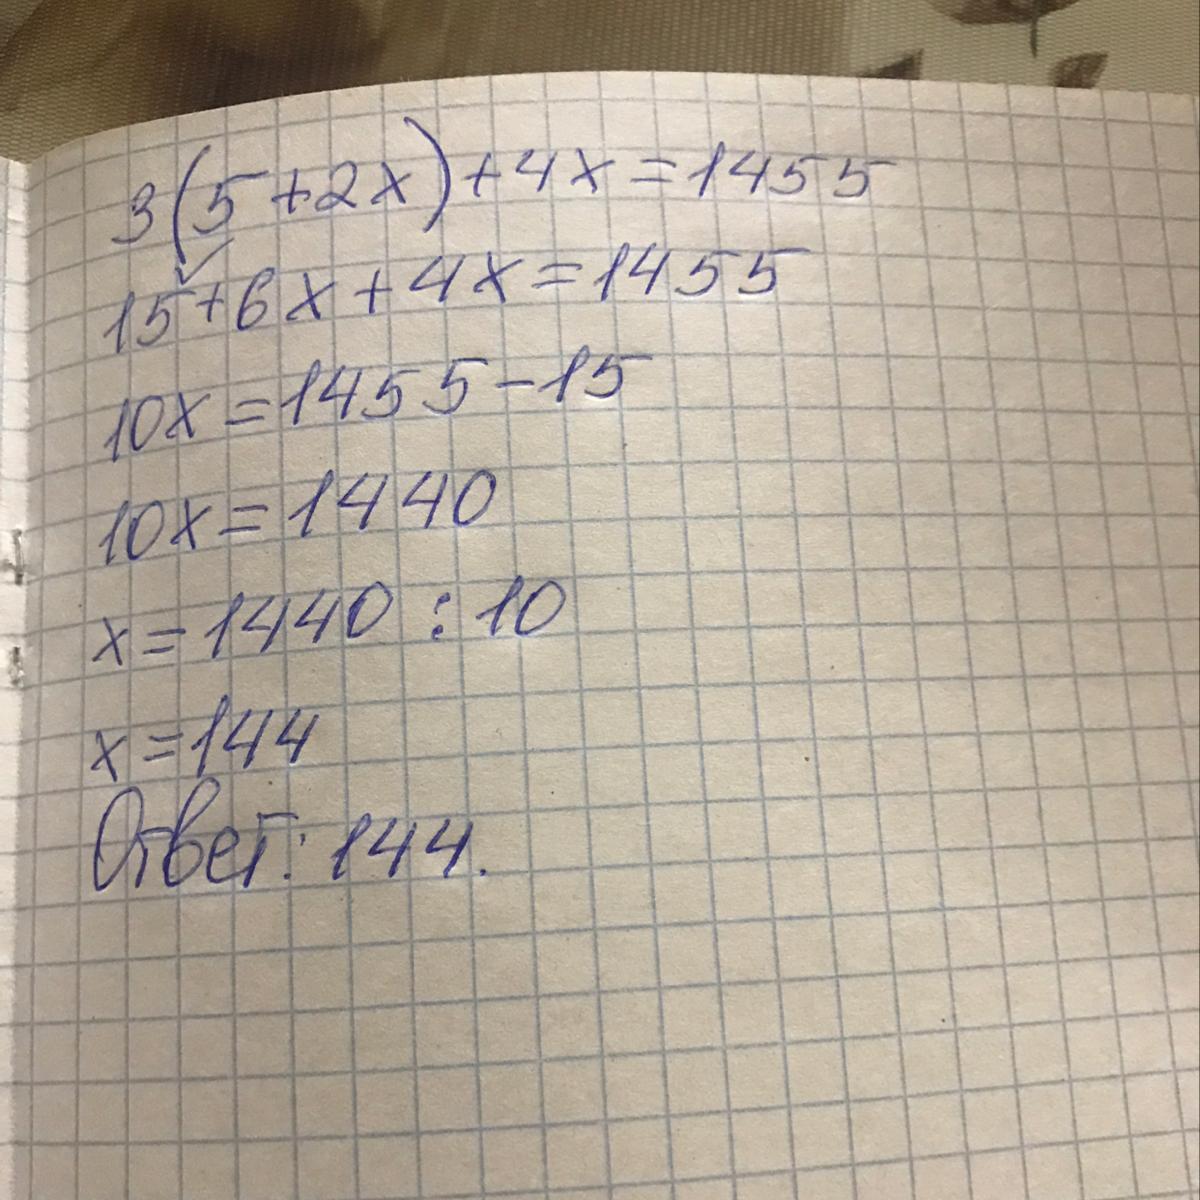 3(5+2x)+4x=1455
15+6x+4x=1455
10x=1455-15
10x=1440
x=1440:10
x=144
Ответ: 144.